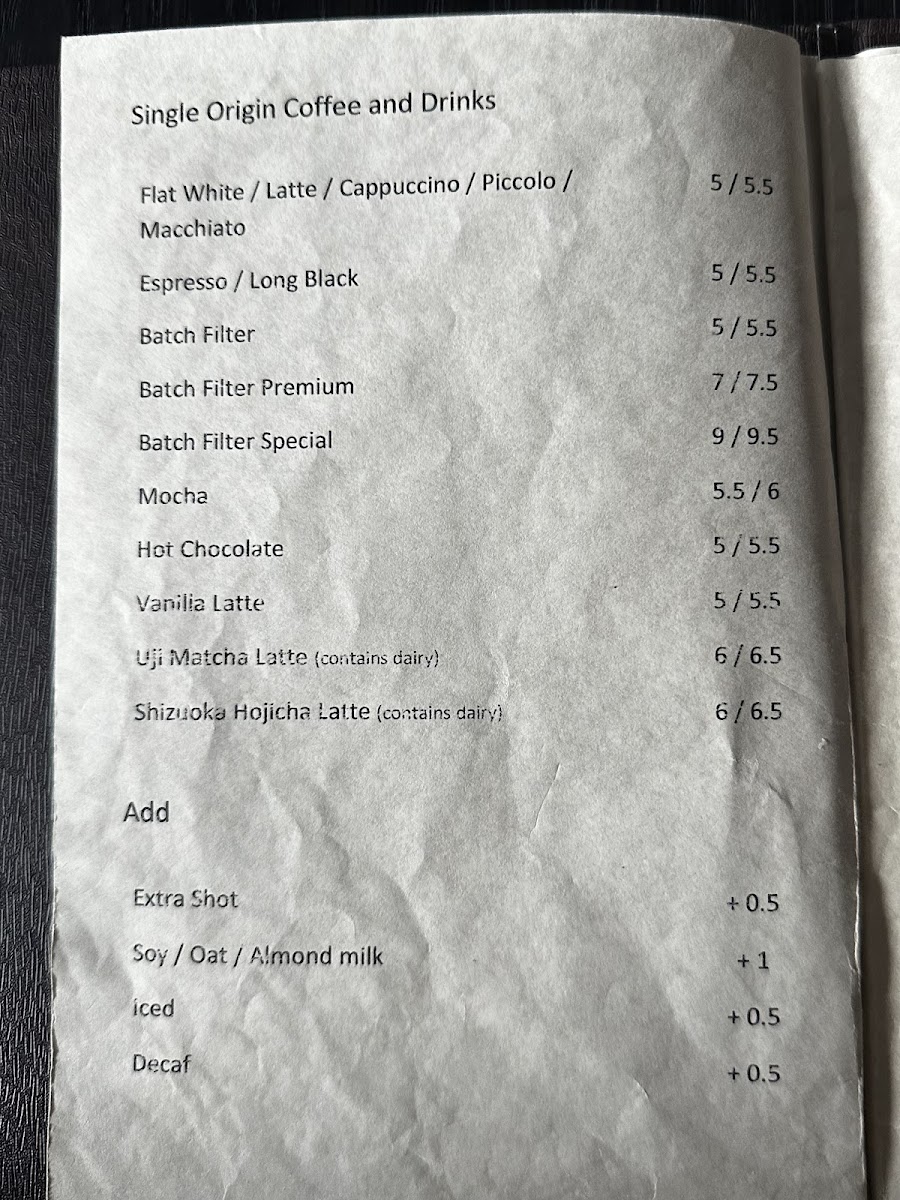 Single Origin Coffee and Drinks
Flat White / Latte / Cappuccino / Piccolo / 5 / 5.5
Macchiato
Espresso / Long Black 5 / 5.5
Batch Filter 5 / 5.5
Batch Filter Premium 7 / 7.5
Batch Filter Special 9 / 9.5
Mocha 5.5 / 6
Hot Chocolate 5 / 5.5
Vanilla Latte 5 / 5.5
Uji Matcha Latte (contains dairy) 6 / 6.5
Shizuoka Hojicha Latte (contains dairy) 6 / 6.5
Add
Extra Shot + 0.5
Soy / Oat / Almond milk + 1
iced + 0.5
Decaf + 0.5